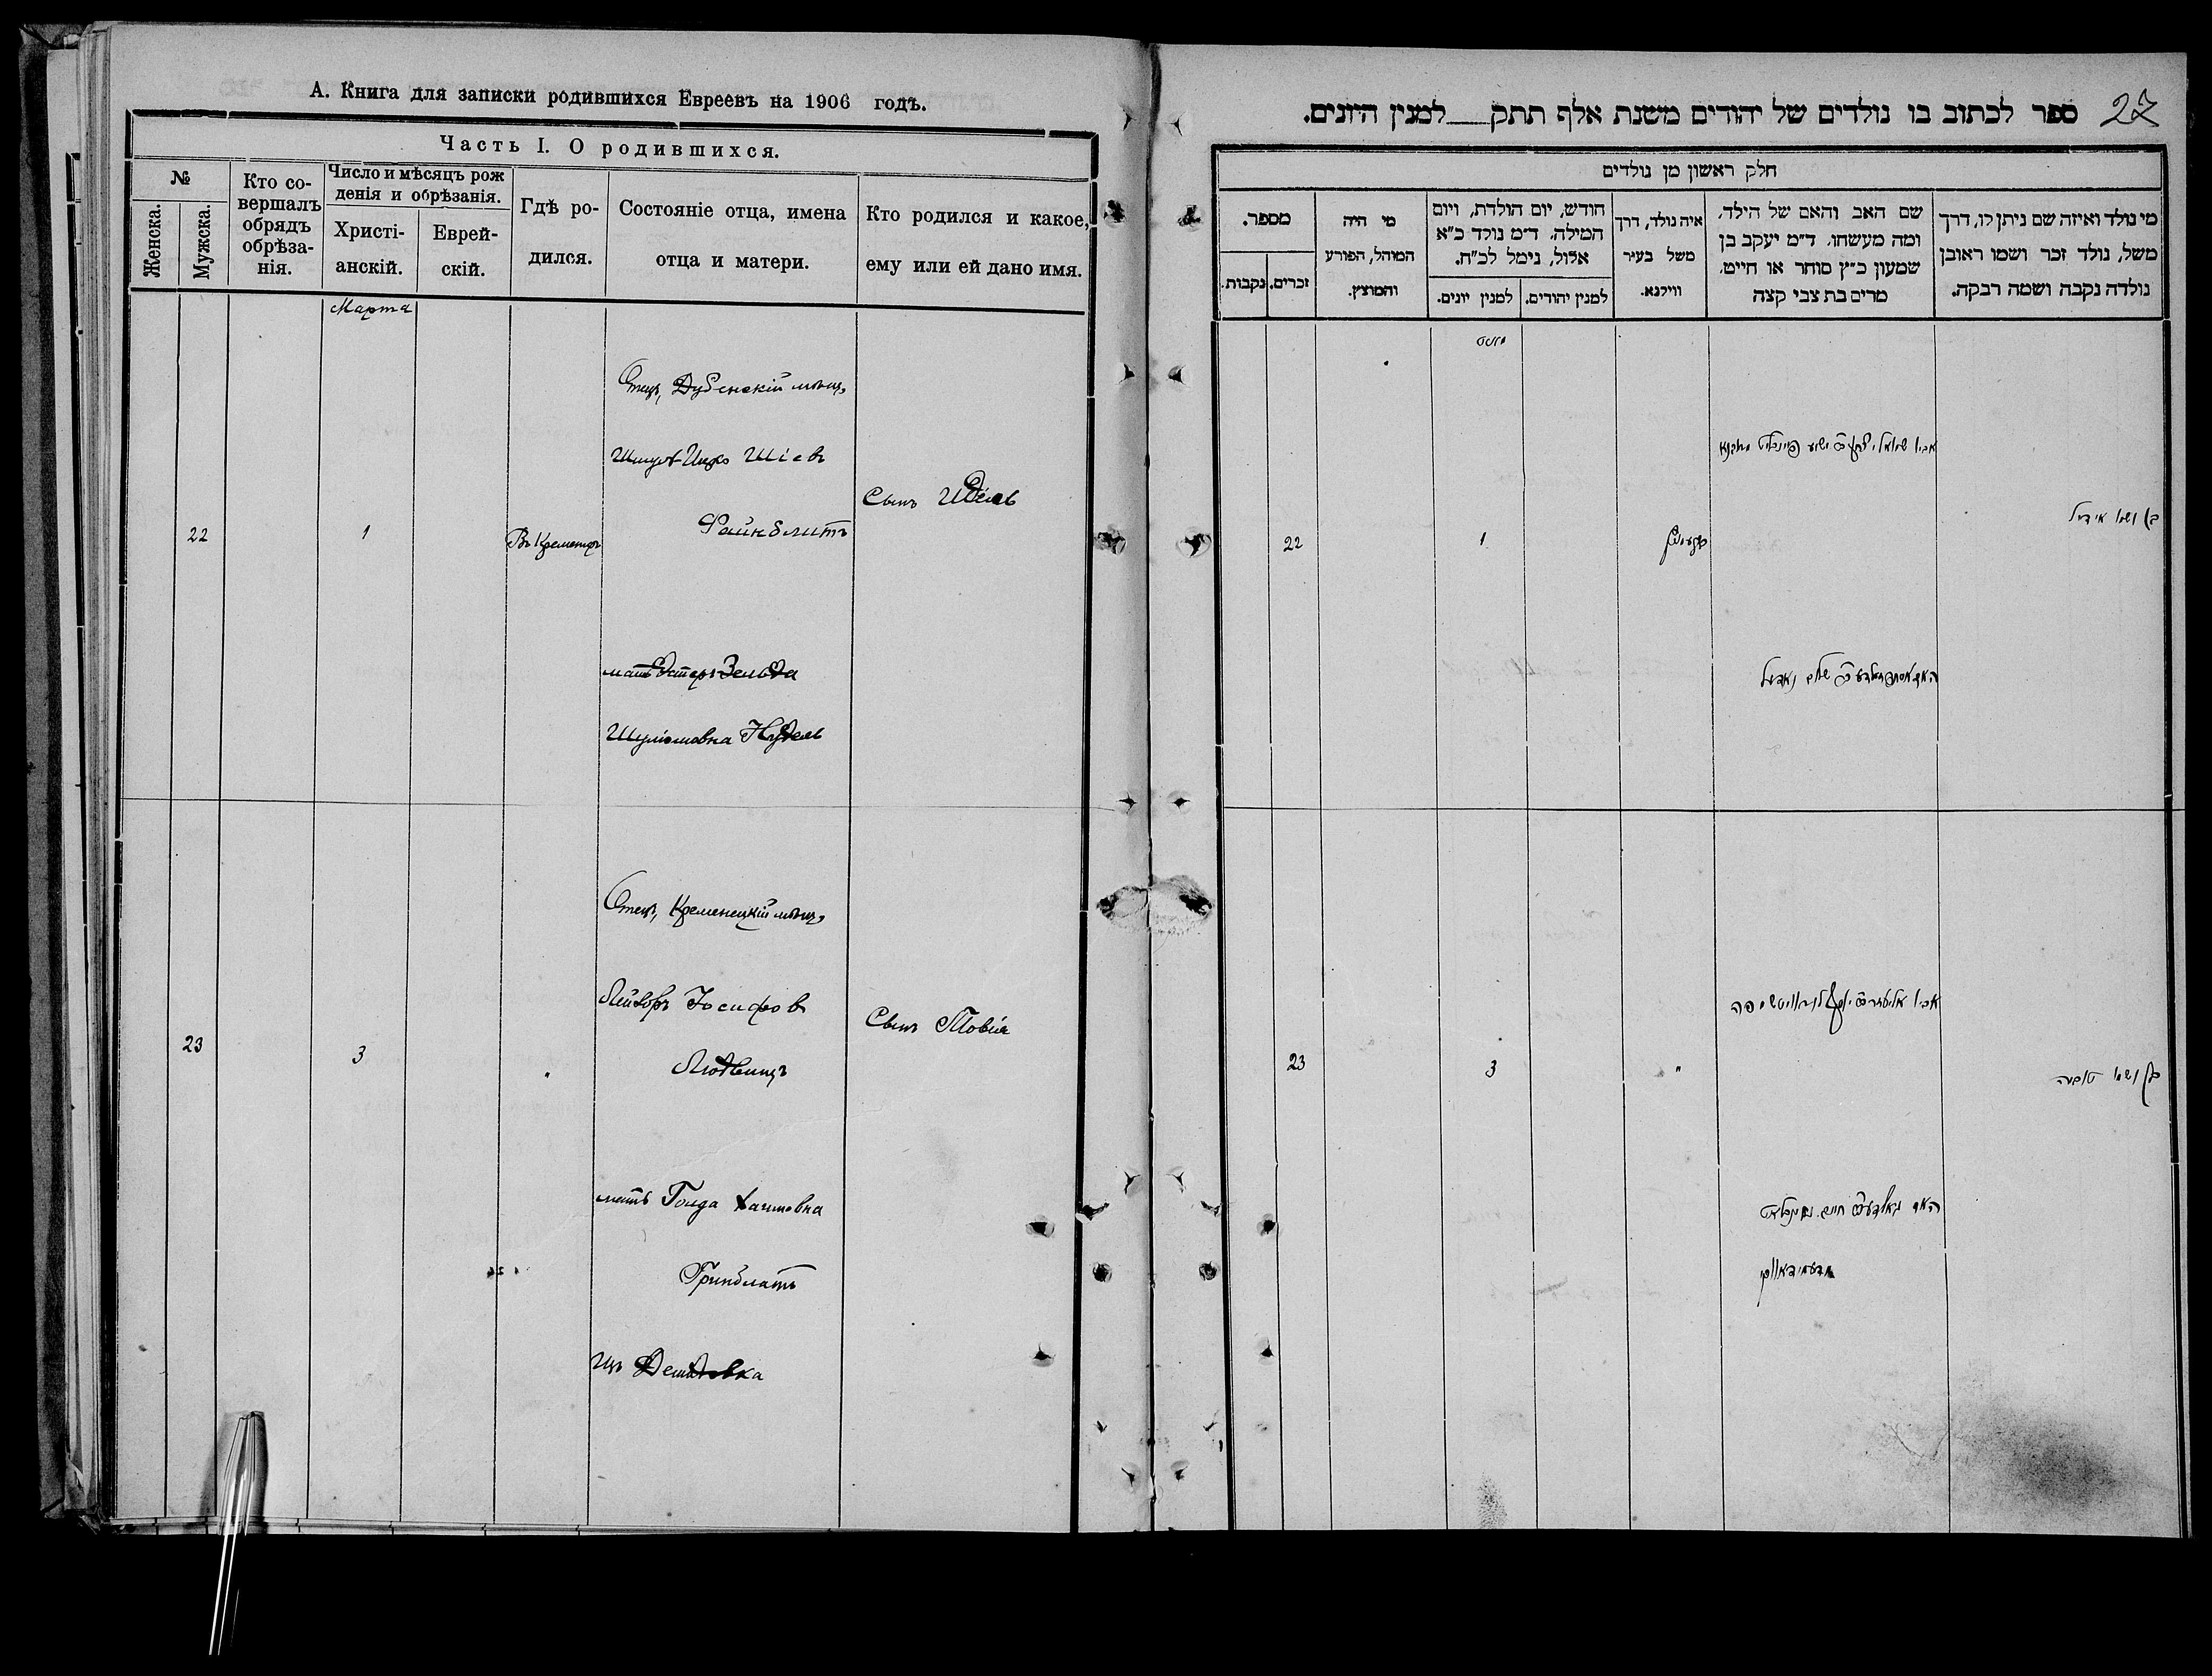 А. Книга для записки родившихся Евреевъ на 1906 годъ.
Часть I. О родившихся.
№
Женска.
Мужска.
Кто со-
вершалъ
обрядъ
обрѣза-
нія.
Число и мѣсяцъ рож
денія и обрѣзанія.
Христі-
анскій.
Еврей-
скій.
Гдѣ ро-
дился.
Состояніе отца, имена
отца и матери.
Кто родился и какое,
ему или ей дано имя.
Марта
22
1
Въ Кременцѣ
Отец, Дубенскій мѣщ,
Шмуль Ицко Шіевъ
Файнблитъ
мать Эстеръ Зельда
Шуліомовна Нудель
Сынъ Идель
23
3
"
Отец, Кременецкій мѣщ,
Лейзоръ Іосифовъ
мать Голда Хаимовна
Гринблатъ
Изъ Демидовка
Сынъ Товія
27
ספר לכתוב בו נולדים של יהודים משנת אלף תתק___למנין היונים.
חלק ראשון מן נולדים
מי נולד ואיזה שם ניתן לו, דרך
משל, נולד זכר ושמו ראובן
נולדה נקבה ושמה רבקה.
שם האב והאם של הילד,
ומה מעשהו. ד״מ יעקב בן
שמעון כ״ץ סוחר או חייט,
מרים בת צבי קצה
איה נולד, דרך
משל בעיר
ווילנא.
חודש, יום הולדת, ויום
המילה, ד״מ נולד כ״א
אלול, נימל לכ״ח.
למנין יהודים.
למנין יונים.
מי היה
המוהל, הפורע
והמוצץ.
מספר.
זכרים.
נקבות.
מארט
בן ושמו אידיל
קרעמניץ
1
22
בן ושמו טוביה
"
3
23